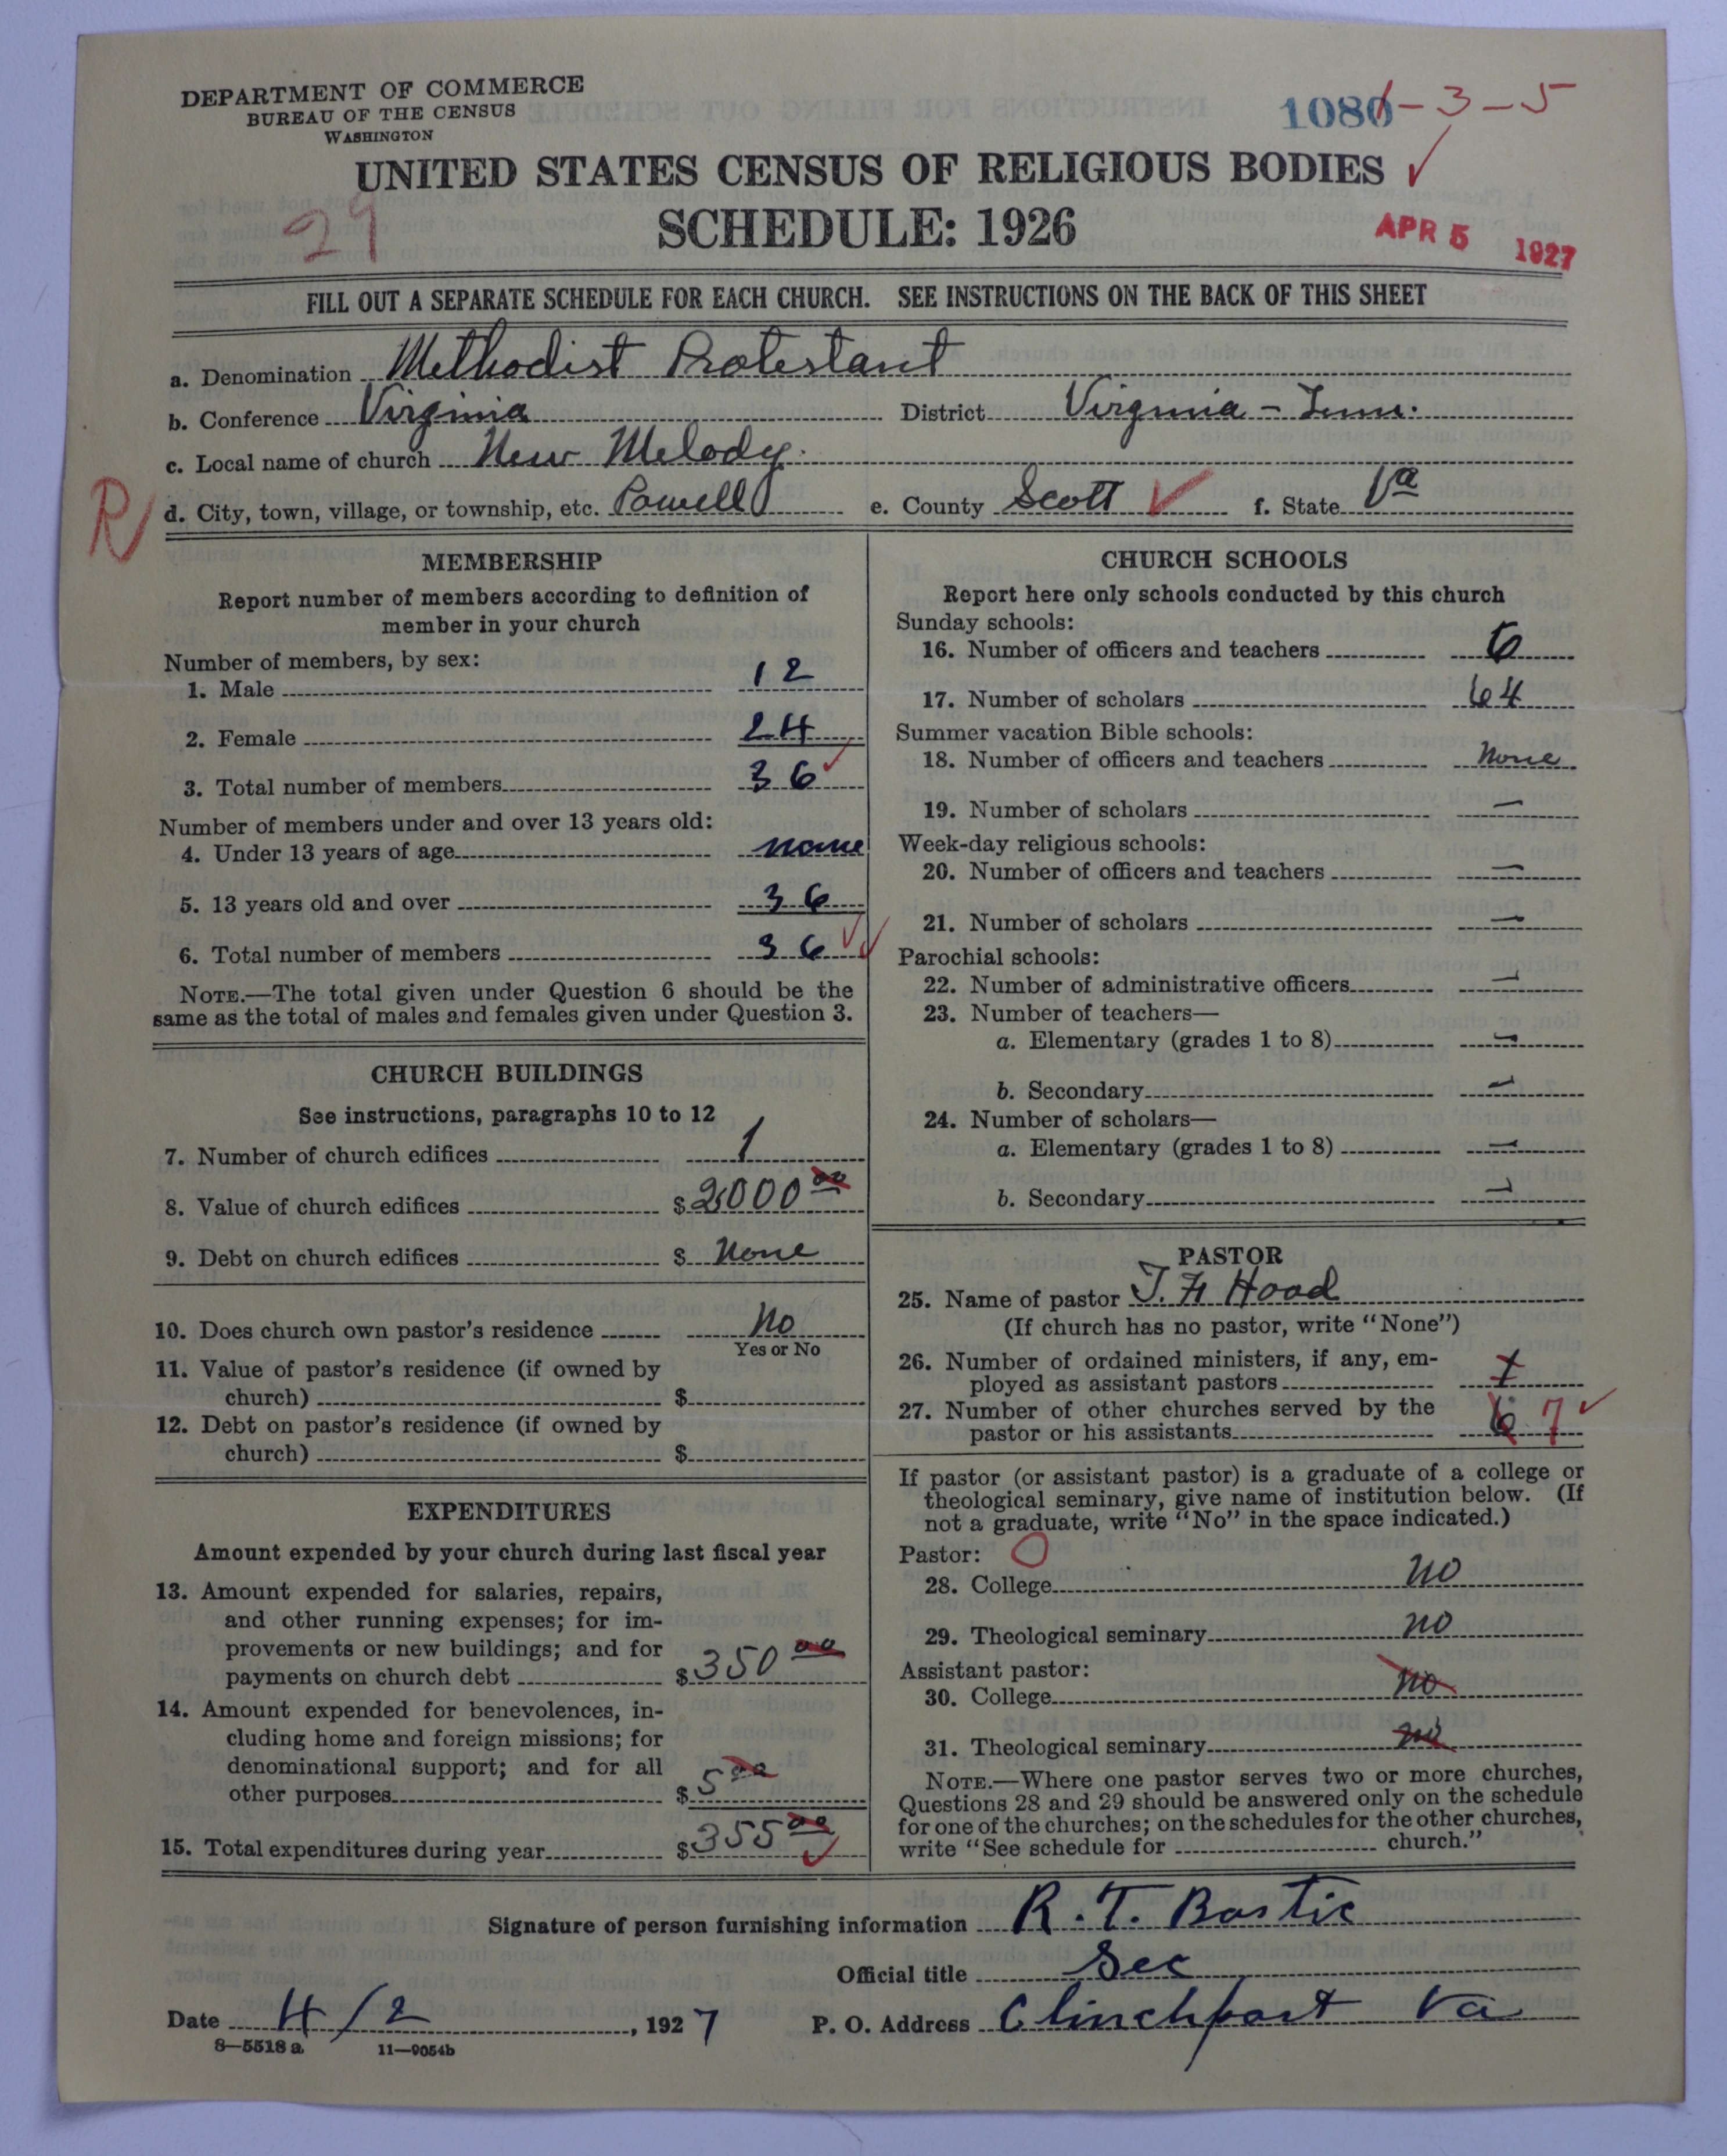 DEPARTMENT OF COMMERCE
BUREAU OF THE CENSUS
WASHINGTON
1080-3-5
UNITED STATES CENSUS OF RELIGIOUS BODIES ✓
29
SCHEDULE: 1926
APR 5 1927
FILL OUT A SEPARATE SCHEDULE FOR EACH CHURCH. SEE INSTRUCTIONS ON THE BACK OF THIS SHEET
a. Denomination Methodist Protestant
b. Conference Virginia District Virginia - Tenn.
c. Local name of church New Melody
R d. City, town, village, or township, etc. Powell e. County Scott ✓ f. State Va
MEMBERSHIP
Report number of members according to definition of
member in your church
Number of members, by sex:
1. Male 12
2. Female 24
3. Total number of members 36 ✓
Number of members under and over 13 years old:
4. Under 13 years of age none
5. 13 years old and over 36
6. Total number of members 36 ✓✓
NOTE.—The total given under Question 6 should be the
same as the total of males and females given under Question 3.
CHURCH BUILDINGS
See instructions, paragraphs 10 to 12
7. Number of church edifices 1
8. Value of church edifices $2000 00
9. Debt on church edifices $ None
10. Does church own pastor's residence No
Yes or No
11. Value of pastor's residence (if owned by
church) $
12. Debt on pastor's residence (if owned by
church) $
EXPENDITURES
Amount expended by your church during last fiscal year
13. Amount expended for salaries, repairs,
and other running expenses; for im-
provements or new buildings; and for
payments on church debt $350 00
14. Amount expended for benevolences, in-
cluding home and foreign missions; for
denominational support; and for all
other purposes $5 00
15. Total expenditures during year $355 00 ✓
CHURCH SCHOOLS
Report here only schools conducted by this church
Sunday schools:
16. Number of officers and teachers 6
17. Number of scholars 64
Summer vacation Bible schools:
18. Number of officers and teachers None
19. Number of scholars —
Week-day religious schools:
20. Number of officers and teachers —
21. Number of scholars —
Parochial schools:
22. Number of administrative officers —
23. Number of teachers—
a. Elementary (grades 1 to 8) —
b. Secondary —
24. Number of scholars—
a. Elementary (grades 1 to 8) —
b. Secondary —
PASTOR
25. Name of pastor J. F. Hood
(If church has no pastor, write "None")
26. Number of ordained ministers, if any, em-
ployed as assistant pastors 1
27. Number of other churches served by the
pastor or his assistants 6 7 ✓
If pastor (or assistant pastor) is a graduate of a college or
theological seminary, give name of institution below. (If
not a graduate, write "No" in the space indicated.)
Pastor: O
28. College no
29. Theological seminary no
Assistant pastor:
30. College no
31. Theological seminary no
NOTE.—Where one pastor serves two or more churches,
Questions 28 and 29 should be answered only on the schedule
for one of the churches; on the schedules for the other churches,
write "See schedule for church."
Signature of person furnishing information R. T. Bostic
Official title Sec
Date 4/2, 1927 P. O. Address Clinchport Va
8—5518 a 11—9054b